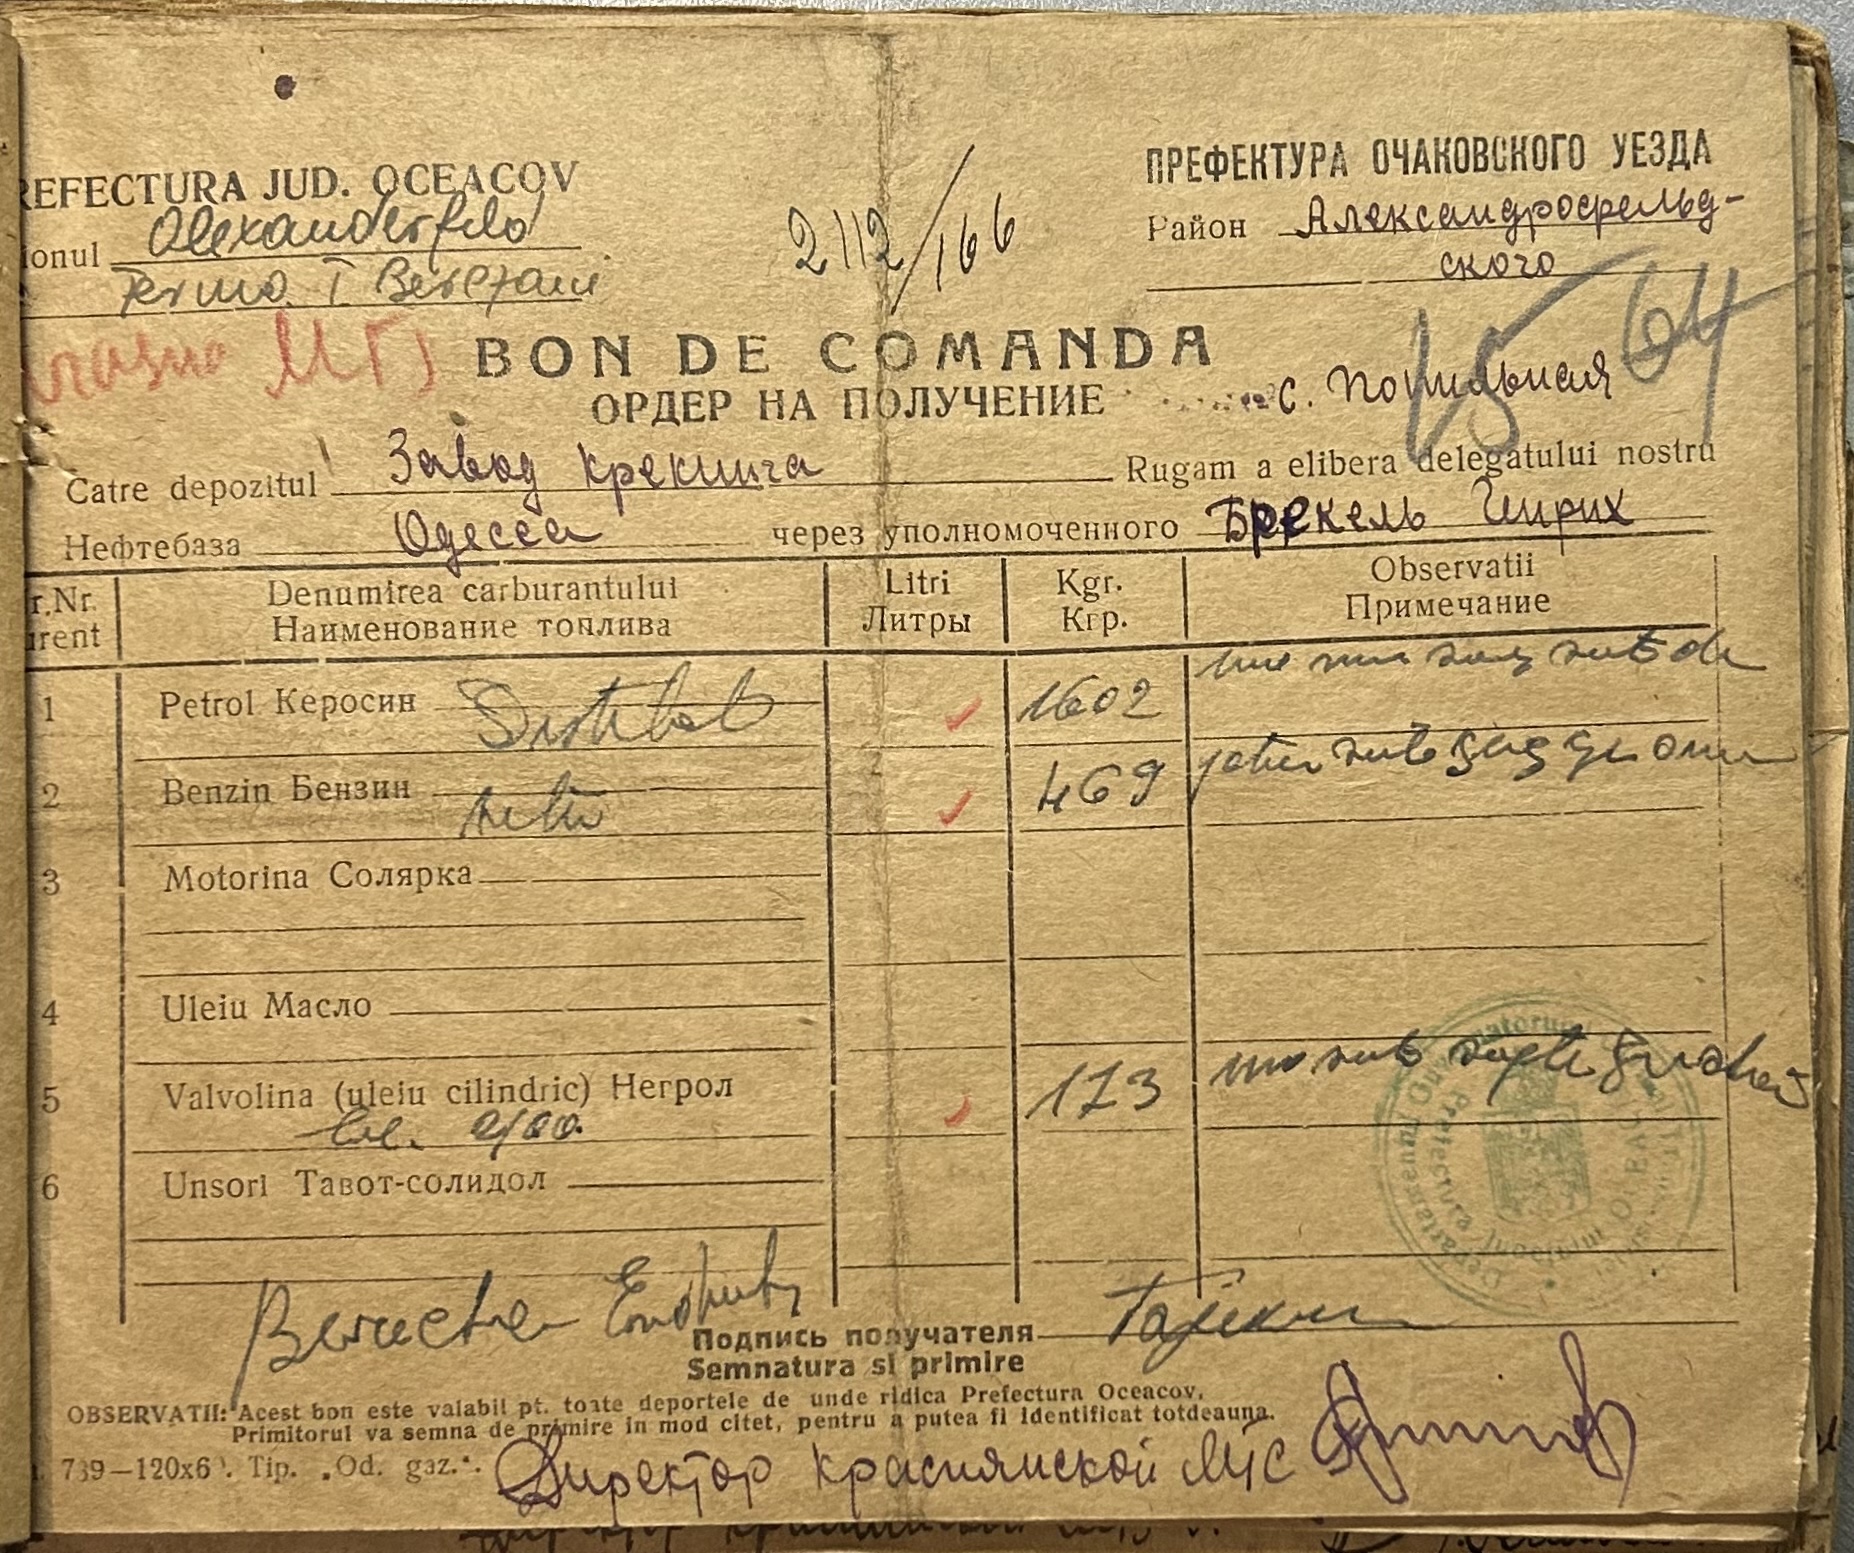 REFECTURA JUD. OCEACOV
ПРЕФЕКТУРА ОЧАКОВСКОГО УЕЗДА
ionul Alexanderfeld
Ferma I Berezani
2112/166
Район Александрофельд-
ского
МТС
64
BON DE COMANDA
ОРДЕР НА ПОЛУЧЕНИЕ
с.
Catre depozitul Завод крекинга Rugam a elibera delegatului nostru
Нефтебаза Одесса через уполномоченного Брекель
r.Nr.
urent
Denumirea carburantului
Наименование топлива
Litri
Литры
Kgr.
Кгр.
Observatii
Примечание
1 Petrol Керосин 1602 une mii șase sute doi
2 Benzin Бензин 469 patru sute șase zeci
3 Motorina Солярка
4 Uleiu Масло
5 Valvolina (uleiu cilindric) Негрол 173 una suta șapte
6 Unsori Тавот-солидол
Подпись получателя
Semnatura si primire
OBSERVATII: Acest bon este valabil pt. toate deportele de unde ridica Prefectura Oceacov.
Primitorul va semna de primire in mod citet, pentru a putea fi identificat totdeauna.
739—120x6 . Tip. „Od. gaz.".
Директор Краснянской МТС